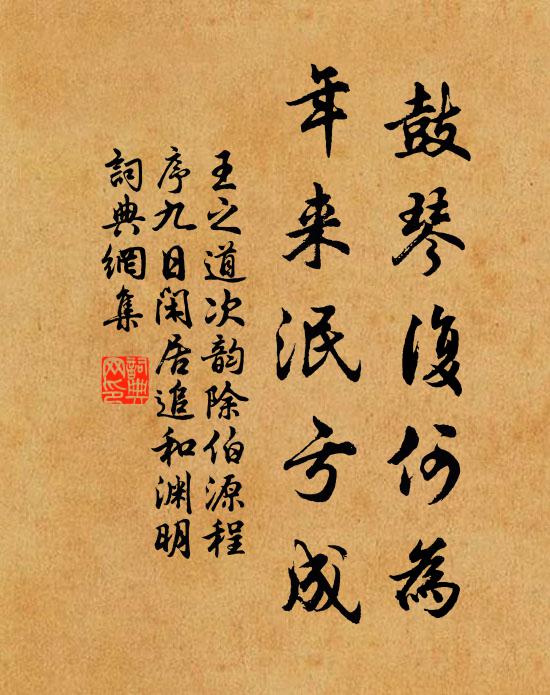 鼓琴復何為
年来泯亏成
王之道次韵除伯源程
序九日闲居追和渊明
詞典網集
詞典网印